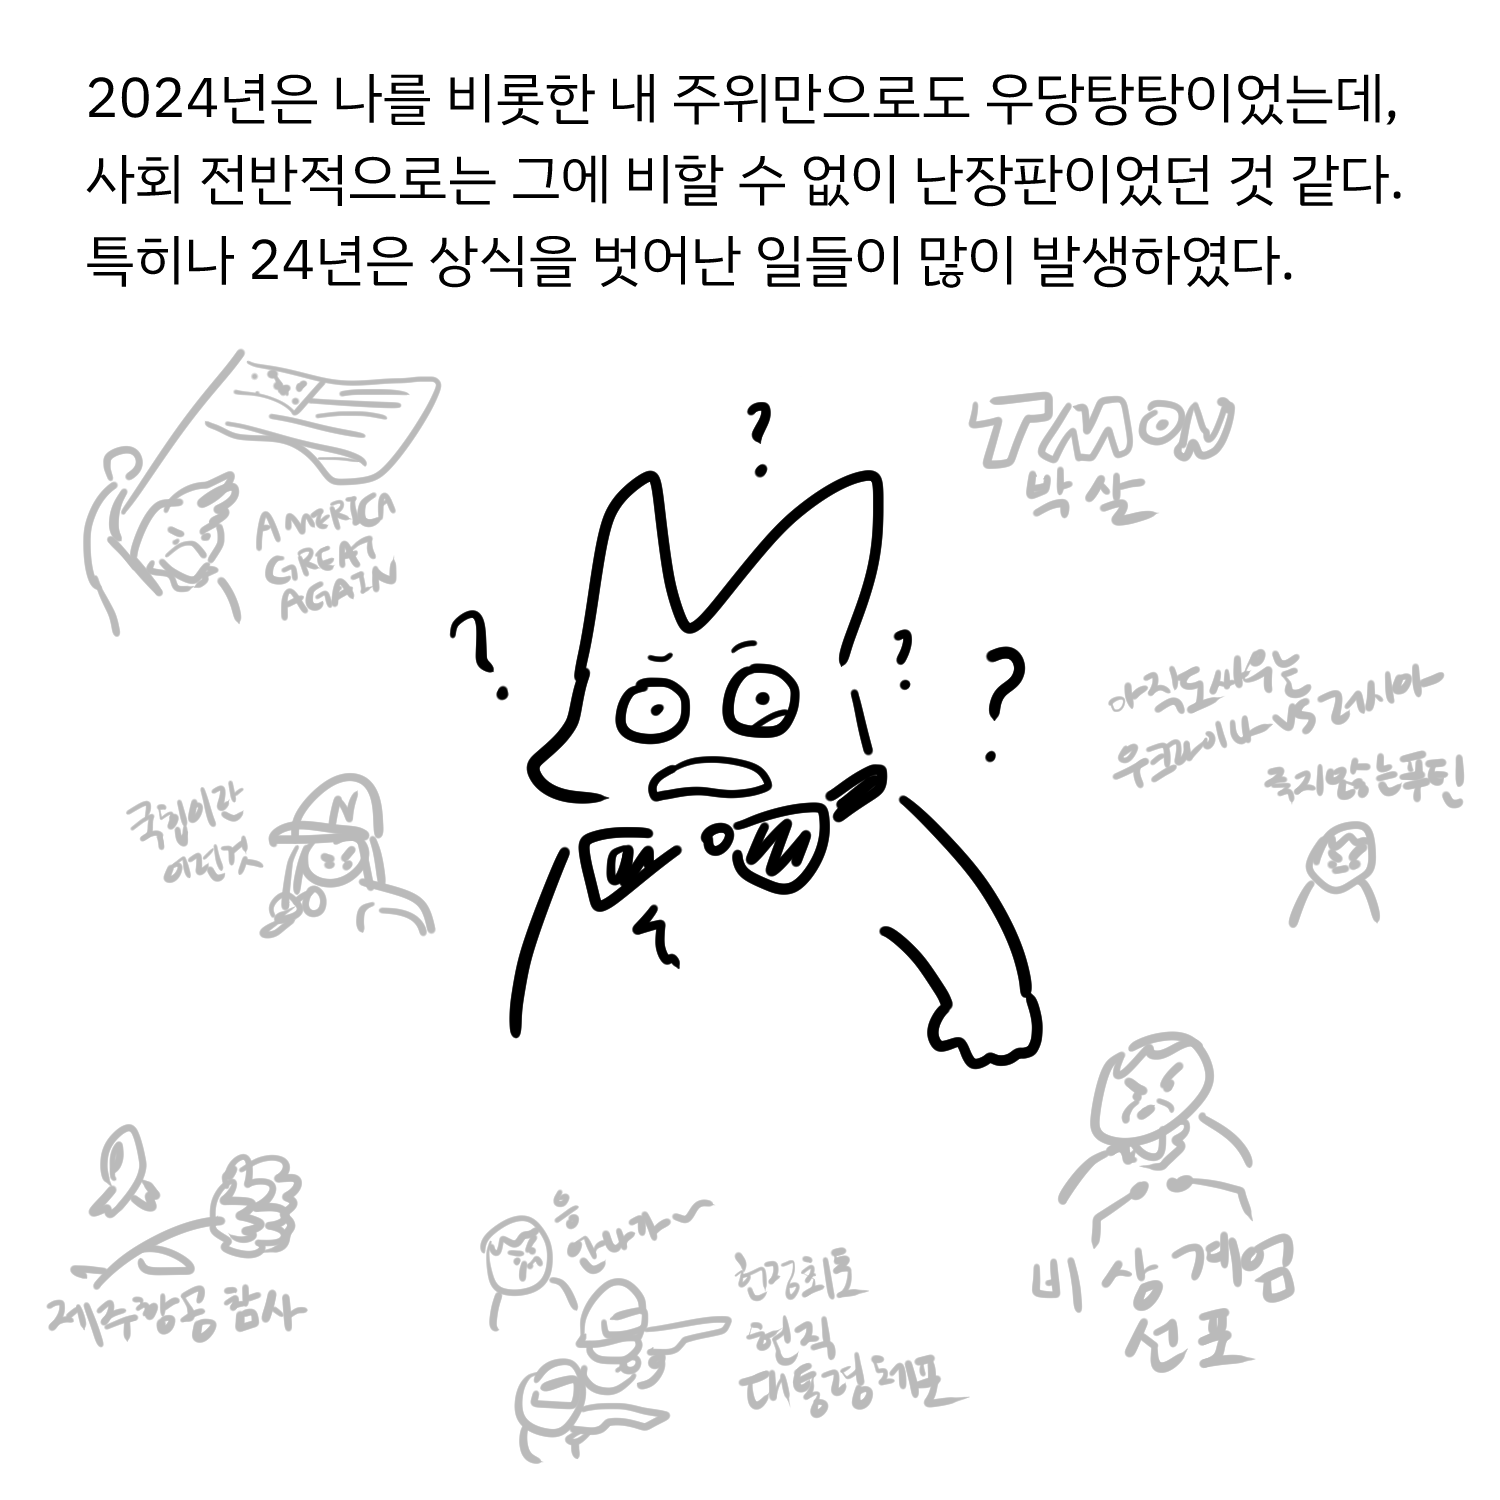 2024년은 나를 비롯한 내 주위만으로도 우당탕탕이었는데,
사회 전반적으로는 그에 비할 수 없이 난장판이었던 것 같다.
특히나 24년은 상식을 벗어난 일들이 많이 발생하였다.
?
AMERICA
GREAT
AGAIN
TMON
박살
?
?
?
아직도 싸우는
우크라이나 VS 러시아
죽지않는 푸틴
국힙이란
이런것
N
제주항공 참사
응
안나가~
헌정최초
현직
대통령 체포
비상계엄
선포